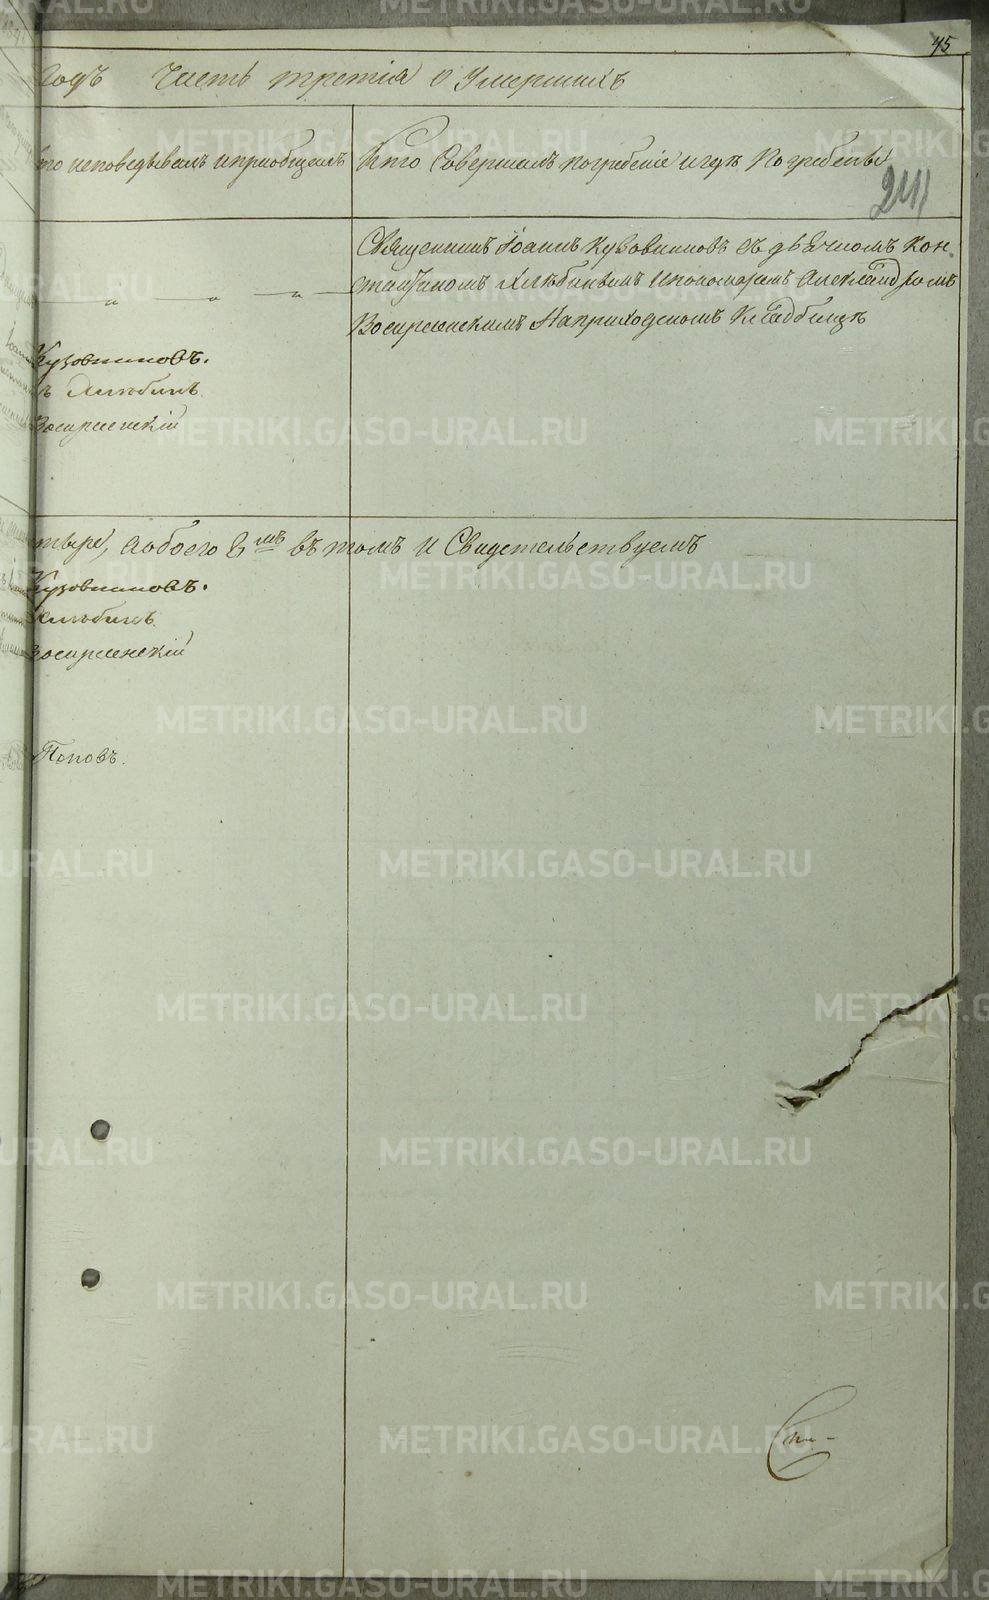 45
годъ Часть третія о Умершихъ
кто исповѣдывалъ и пріобщалъ
Кто Совершалъ погребеніе и гдѣ Погребены
241
Священникъ Іоаннъ Кузовниковъ съ дьячкомъ Кон-
стантиномъ Хлѣбинымъ и пономаремъ Александромъ
Воскресенскимъ На приходскомъ Кладбищѣ
Кузовниковъ.
ъ Хлѣбинъ
Воскресенскій
тыре, а обоего 8мъ въ томъ и Свидетельствуемъ
Кузовниковъ.
Хлѣбинъ
Воскресенскій
Поповъ.
METRIKI.GASO-URAL.RU